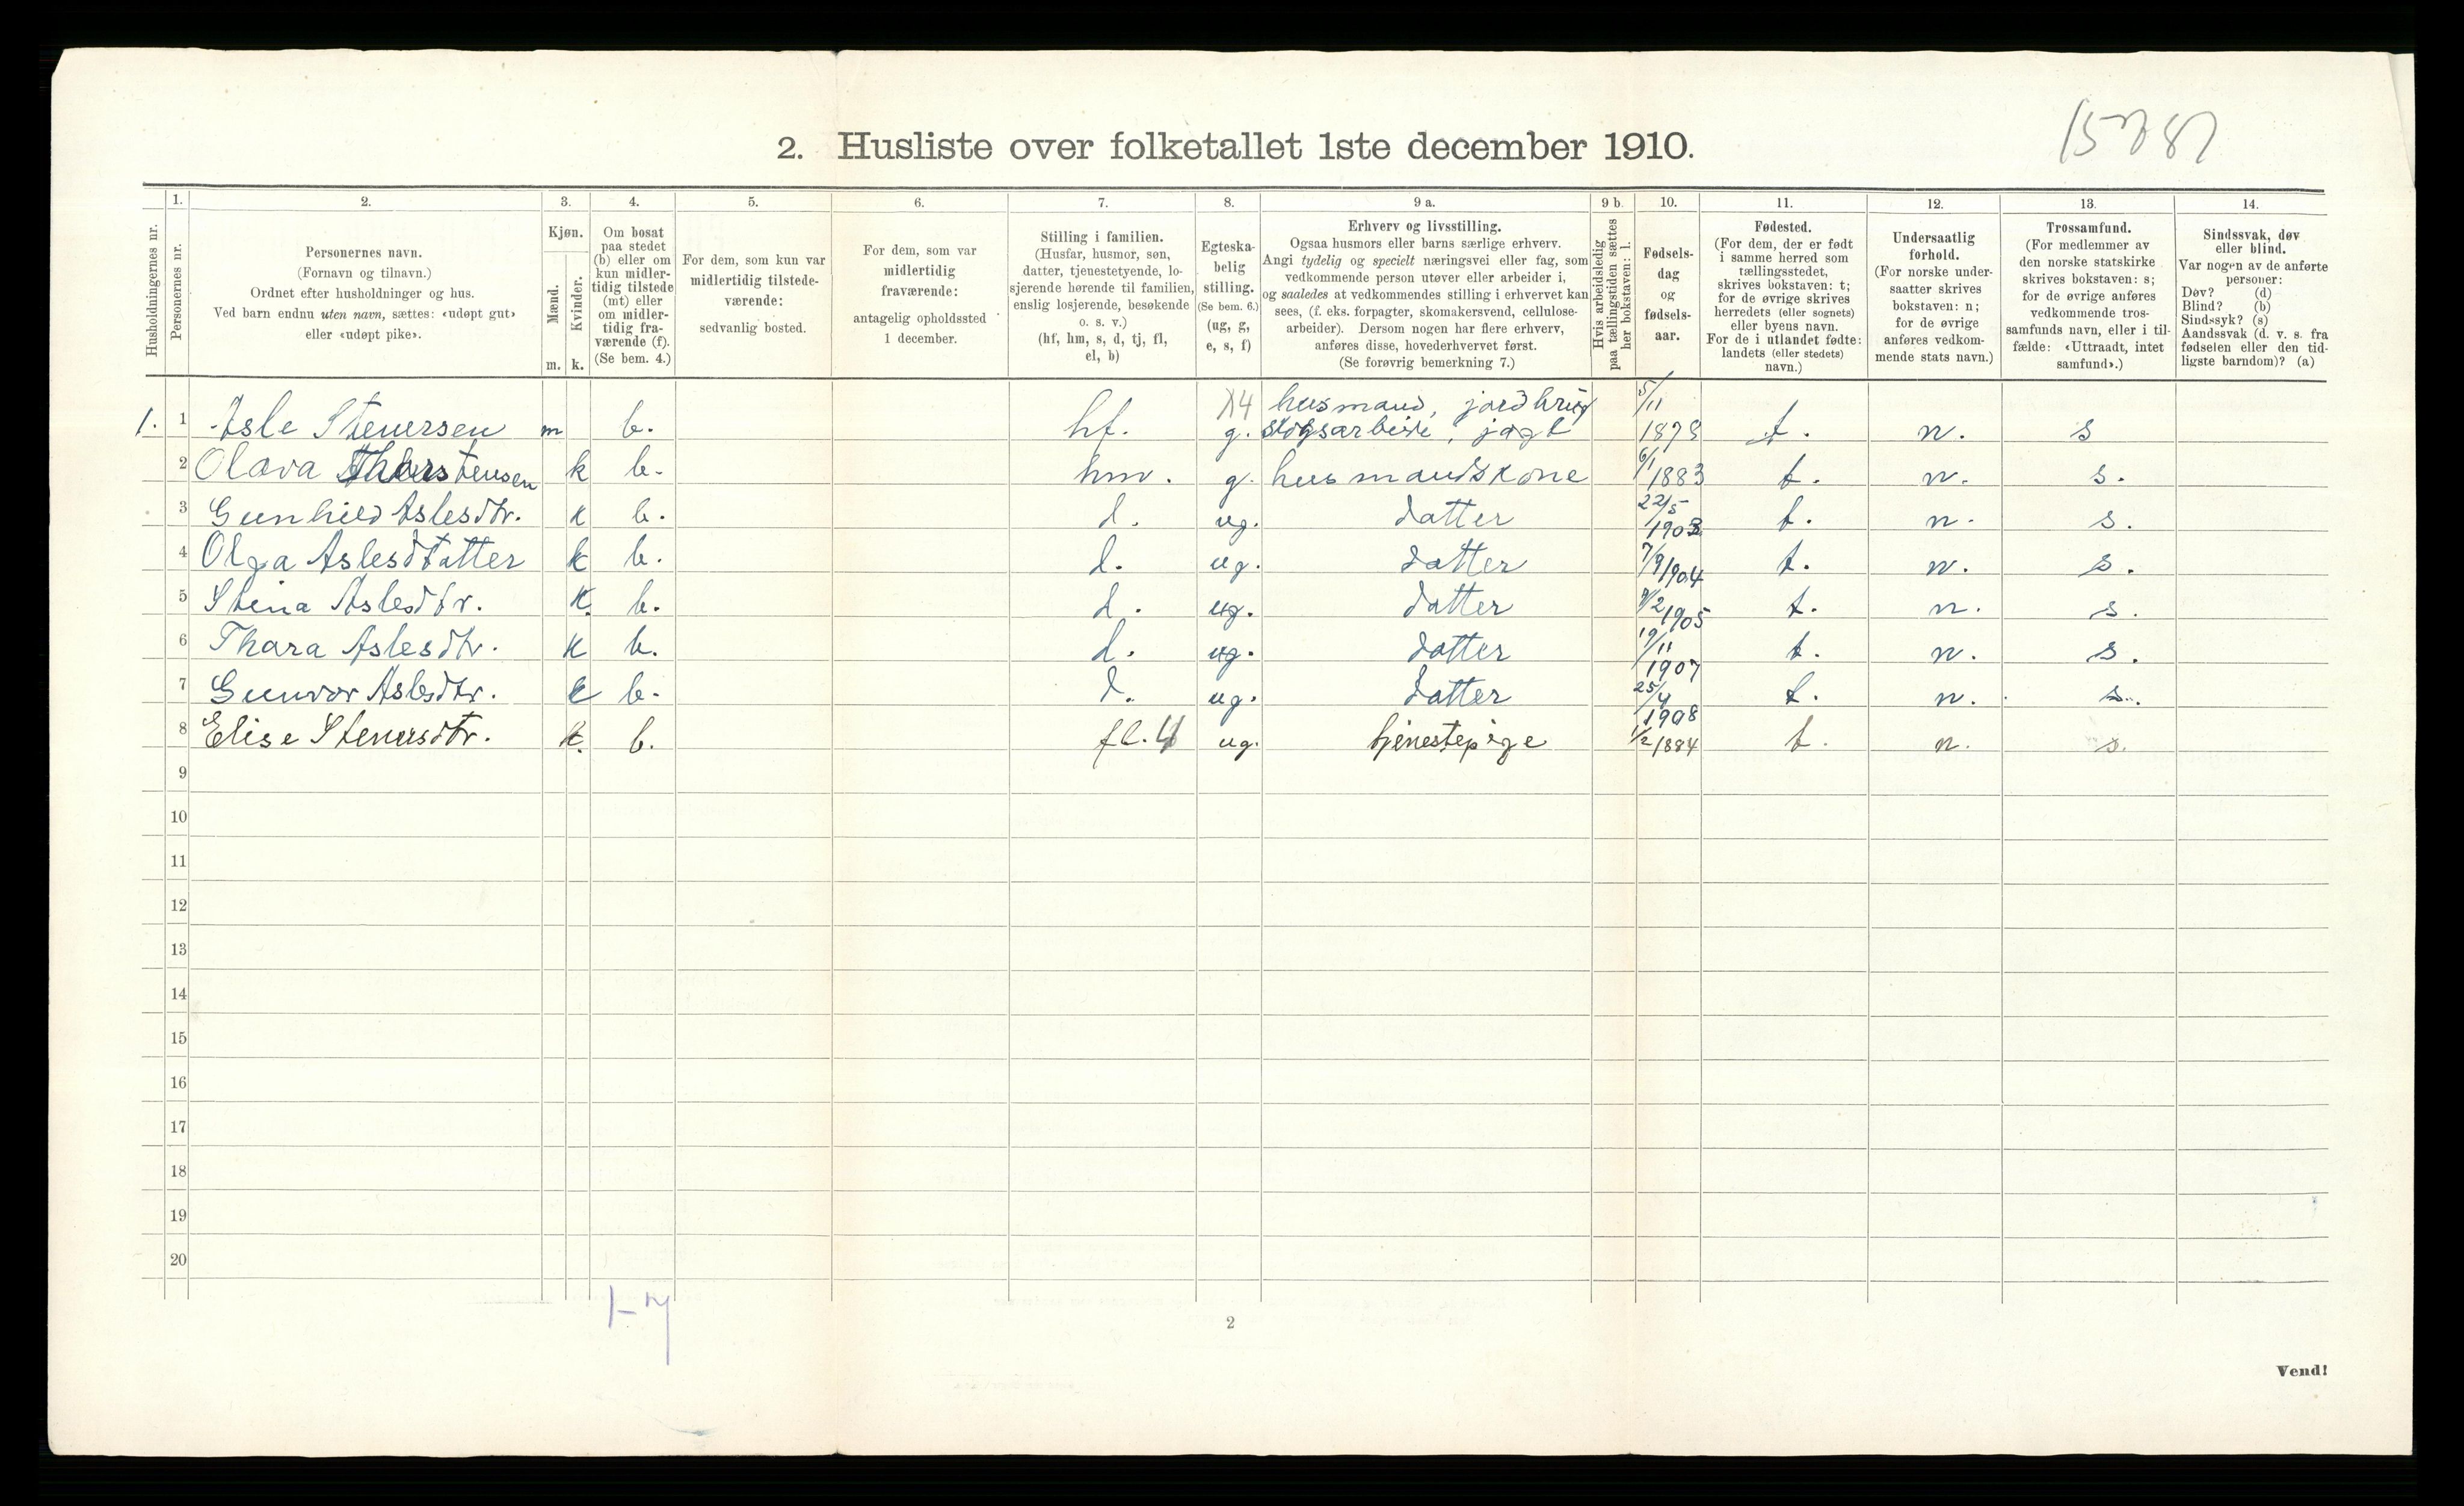 2. Husliste over folketallet 1ste december 1910.
Husholdningernes nr.
1.
Personernes nr.
2.
Personernes navn.
(Fornavn og tilnavn.)
Ordnet efter husholdninger og hus.
Ved barn endnu uten navn, sættes: «udøpt gut»
eller «udøpt pike».
3.
Kjøn.
Mænd.
Kvinder.
m. k.
4.
Om bosat
paa stedet
(b) eller om
kun midler-
tidig tilstede
(mt) eller
om midler-
tidig fra-
værende (f).
(Se bem. 4.)
5.
For dem, som kun var
midlertidig tilstede-
værende:
sedvanlig bosted.
6.
For dem, som var
midlertidig
fraværende:
antagelig opholdssted
1 december.
7.
Stilling i familien.
(Husfar, husmor, søn,
datter, tjenestetyende, lo-
sjerende hørende til familien,
enslig losjerende, besøkende
o. s. v.)
(hf, hm, s, d, tj, fl,
el, b)
8.
Egteska-
belig
stilling.
(Se bem. 6.)
(ug, g,
e, s, f)
9 a.
Erhverv og livsstilling.
Ogsaa husmors eller barns særlige erhverv.
Angi tydelig og specielt næringsvei eller fag, som
vedkommende person utøver eller arbeider i,
og saaledes at vedkommendes stilling i erhvervet kan
sees, (f. eks. forpagter, skomakersvend, cellulose-
arbeider). Dersom nogen har flere erhverv,
anføres disse, hovederhvervet først.
(Se forøvrig bemerkning 7.)
9 b.
Hvis arbeidsledig
paa tællingstiden sættes
her bokstaven: l.
10.
Fødsels-
dag
og
fødsels-
aar.
11.
Fødested.
(For dem, der er født
i samme herred som
tællingsstedet,
skrives bokstaven: t;
for de øvrige skrives
herredets (eller sognets)
eller byens navn.
For de i utlandet fødte:
landets (eller stedets)
navn.)
12.
Undersaatlig
forhold.
(For norske under-
saatter skrives
bokstaven: n;
for de øvrige
anføres vedkom-
mende stats navn.)
13.
Trossamfund.
(For medlemmer av
den norske statskirke
skrives bokstaven: s;
for de øvrige anføres
vedkommende tros-
samfunds navn, eller i til-
fælde: «Uttraadt, intet
samfund».)
14.
Sindssvak, døv
eller blind.
Var nogen av de anførte
personer:
Døv? (d)
Blind? (b)
Sindssyk? (s)
Aandssvak (d. v. s. fra
fødselen eller den tid-
ligste barndom)? (a)
husmand, jordbrug 5/11
1. 1 Asle Stenersen m b. hf. g. skogsarbeide, jagt t. n. s
2 Olava Thorstensen k b. hm. g. husmandskone 6/1 1883 t. n. s.
3 Gunhild Aslesdtr. k b. d. ug. datter 22/5 1903 t. n. s.
4 Olga Aslesdtatter k b. d. ug. datter 7/9 1904 t. n. s.
5 Stina Aslesdtr. k. b. d. ug. datter 1905 t. n. s.
6 Thora Aslesdtr. k b. d. ug. datter 19/11 1907 t. n. s.
7 Gunvor Aslesdtr. k b. d. ug. datter 25/4 1908 t. n. s.
8 Elise Stenersdtr. k. b. fl. 4 ug. tjenestepige 1/2 1884 t. n. s.
9
10
11
12
13
14
15
16
17
18
19
20
2
Vend!